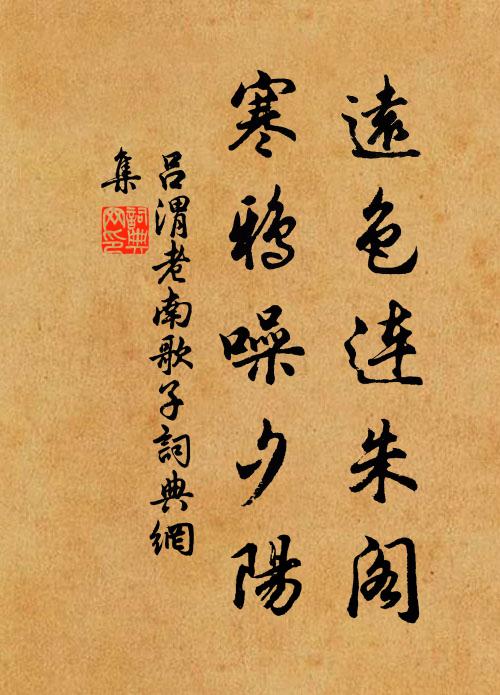 遠色連朱閣
寒鴉噪夕陽
呂渭老南歌子詞典網
集
詞典網印